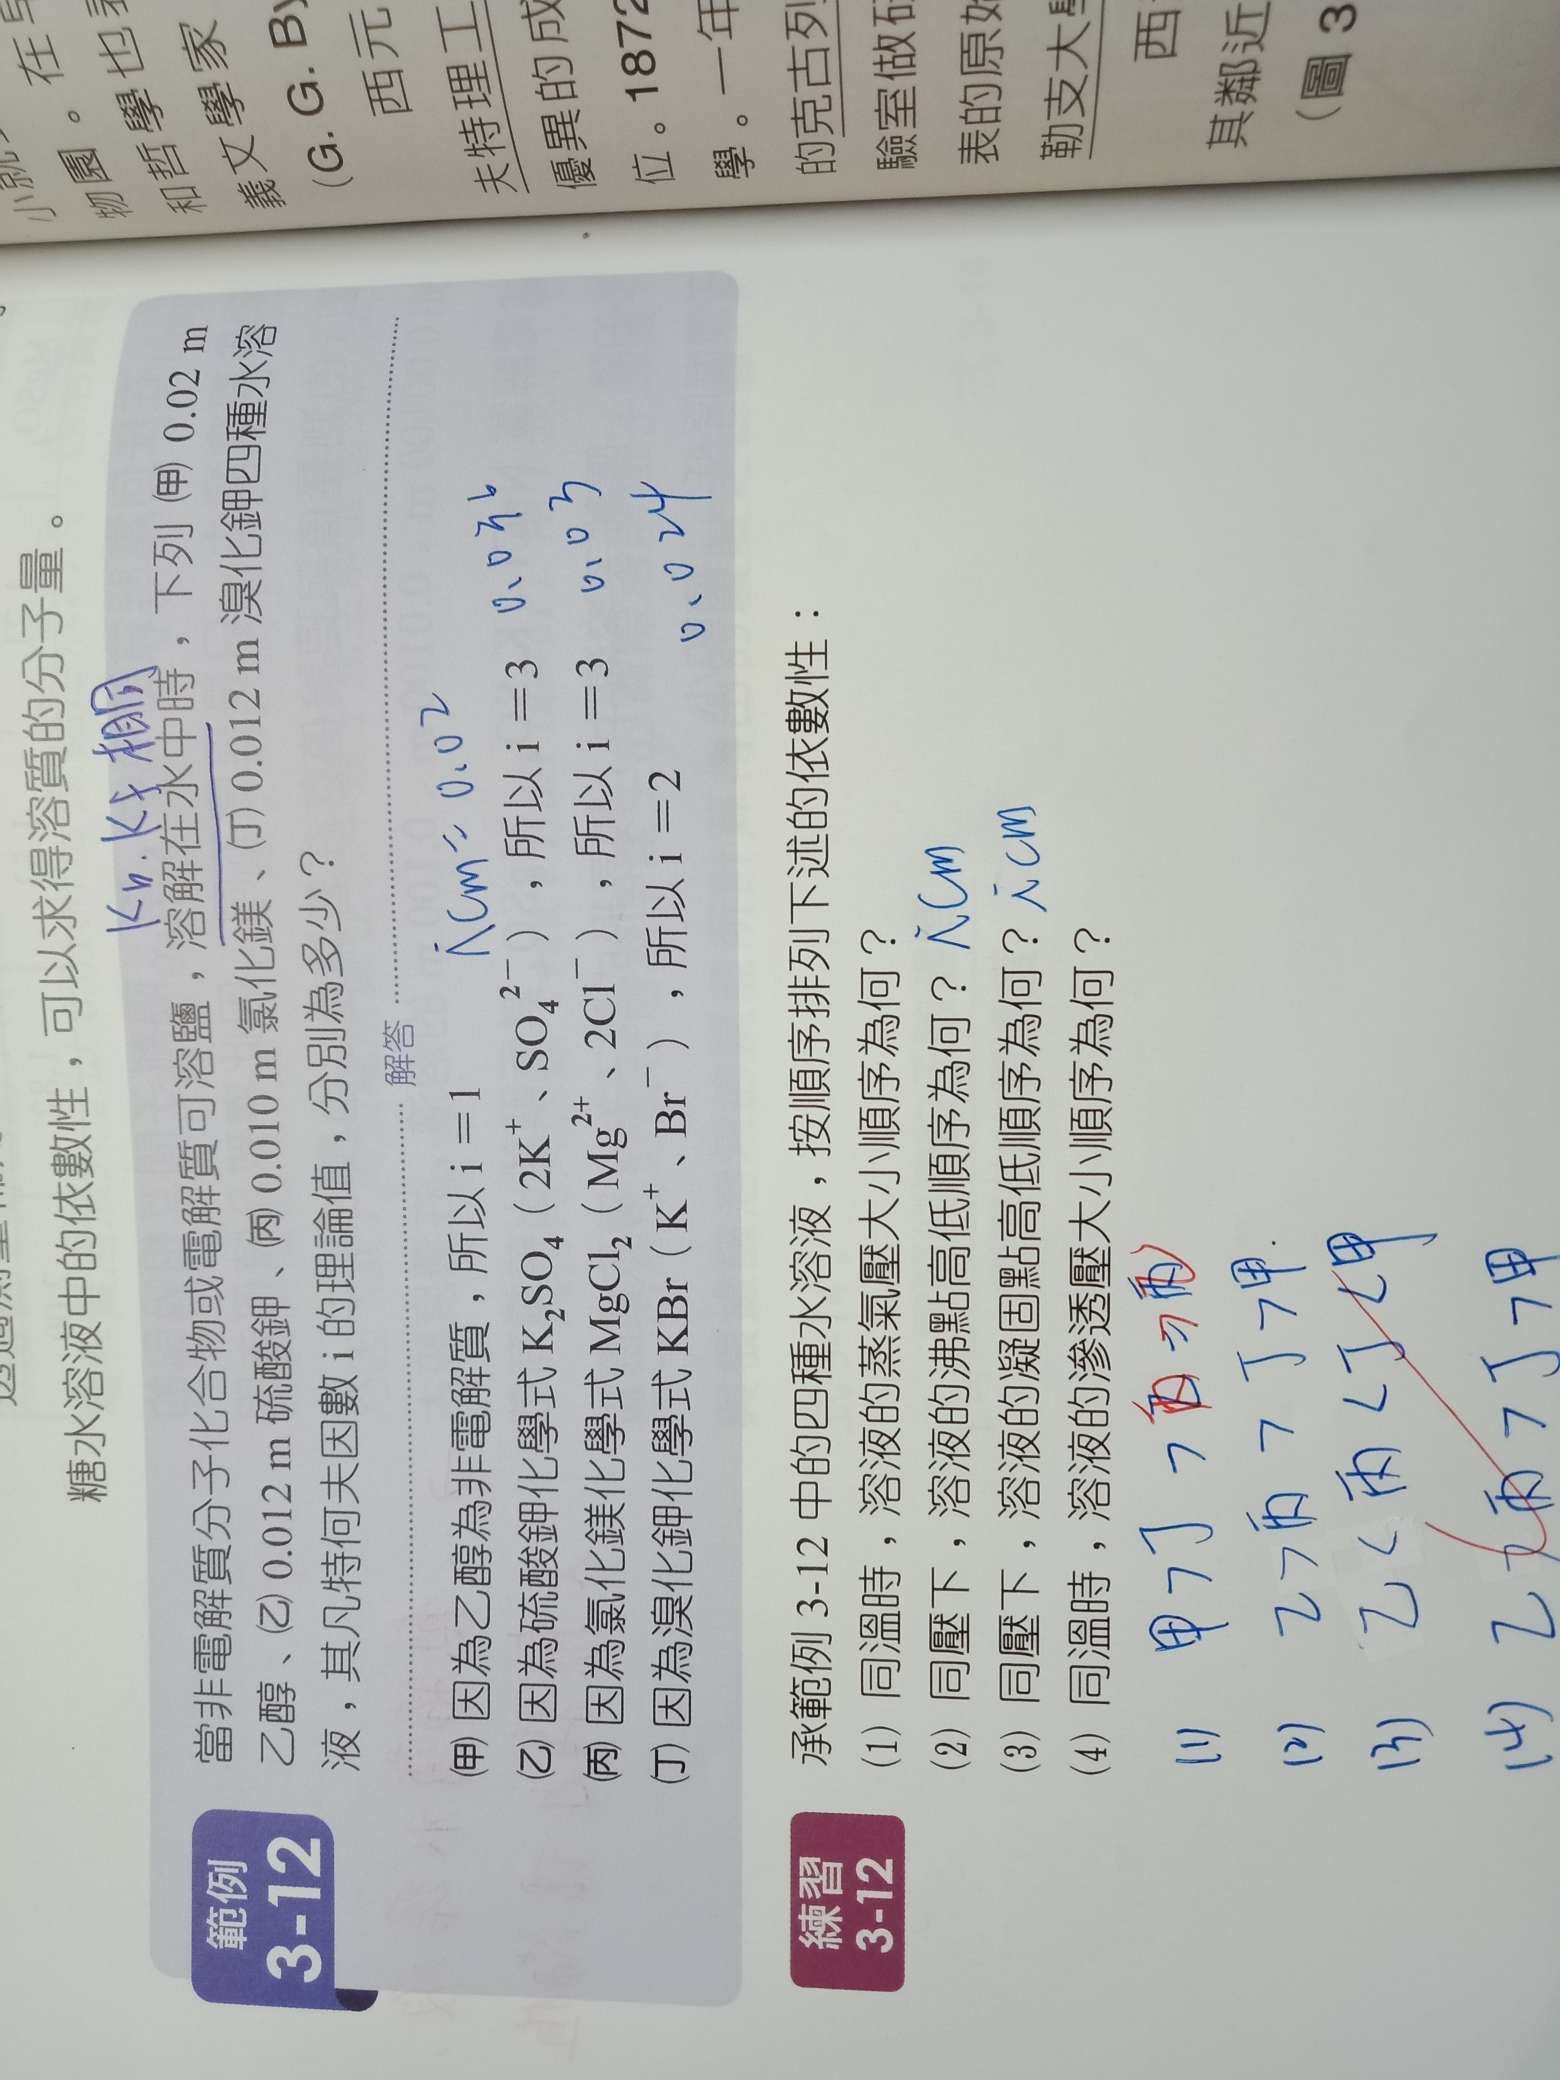 物園。在
和哲學也
義文學家
(G. G. By
西元
夫特理工
優異的成
位。1872
學。一年
的克古列
驗室做研
表的原始
勒支大學
西
其鄰近
(圖 3
糖水溶液中的依數性，可以求得溶質的分子量。
Kb、Kf 相同
範例
3-12
當非電解質分子化合物或電解質可溶鹽，溶解在水中時，下列 (甲) 0.02 m
乙醇、(乙) 0.012 m 硫酸鉀、(丙) 0.010 m 氯化鎂、(丁) 0.012 m 溴化鉀四種水溶
液，其凡特何夫因數 i 的理論值，分別為多少？
解答
(甲) 因為乙醇為非電解質，所以 i＝1 iCm = 0.02
(乙) 因為硫酸鉀化學式 K₂SO₄（2K⁺、SO₄²⁻），所以 i＝3 0.036
(丙) 因為氯化鎂化學式 MgCl₂（Mg²⁺、2Cl⁻），所以 i＝3 0.03
(丁) 因為溴化鉀化學式 KBr（K⁺、Br⁻），所以 i＝2 0.024
練習
3-12
承範例 3-12 中的四種水溶液，按順序排列下述的依數性：
(1) 同溫時，溶液的蒸氣壓大小順序為何？
(2) 同壓下，溶液的沸點高低順序為何？ iCm
(3) 同壓下，溶液的凝固點高低順序為何？ iCm
(4) 同溫時，溶液的滲透壓大小順序為何？
(1) 甲 > 丁 > 丙 >
(2) 乙 > 丙 > 丁 > 甲
(3) 乙 < 丙 < 丁 < 甲
(4) 乙 > 丙 > 丁 > 甲